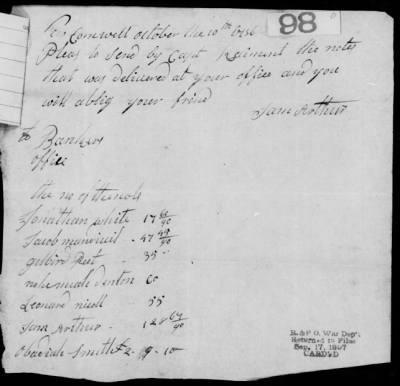 98
Cornwell october the 10th 
Pleas to Send by Capt the notes
that was delivered at your office and you
will ablig your frind
Sam Arthur
to Bankers
office
the no of the nots
Jonathan white 17 /90
Jacob 47 /90
gilbird 35
denton 60
Leonard nicoll 55
Arthur 128 /90
obadiah Smith 2-19-10
R.&P.O. War Dept.
Returned to Files
Sep. 17, 1887
CARDED